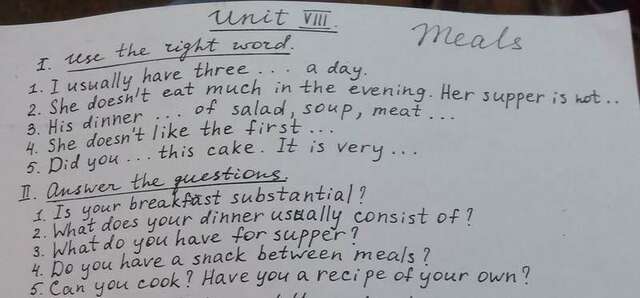 Unit VIII.
Meals
I. Use the right word.
1. I usually have three ... a day.
2. She doesn't eat much in the evening. Her supper is not ..
3. His dinner ... of salad, soup, meat ...
4. She doesn't like the first ...
5. Did you ... this cake. It is very ...
II. Answer the questions.
1. Is your breakfast substantial?
2. What does your dinner usually consist of?
3. What do you have for supper?
4. Do you have a snack between meals?
5. Can you cook? Have you a recipe of your own?